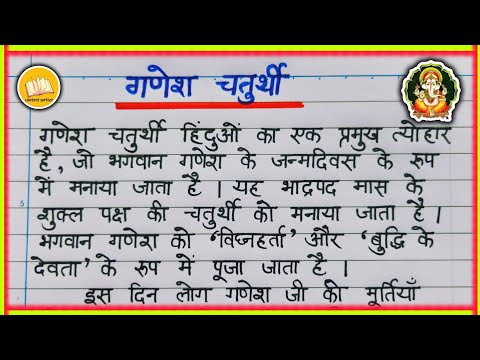 गणेश चतुर्थी
गणेश चतुर्थी हिंदुओं का एक प्रमुख त्योहार
है, जो भगवान गणेश के जन्मदिवस के रुप
में मनाया जाता है । यह भाद्रपद मास के
शुक्ल पक्ष की चतुर्थी को मनाया जाता है ।
भगवान गणेश को 'विघ्नहर्ता' और 'बुद्धि के
देवता' के रुप में पूजा जाता है ।
इस दिन लोग गणेश जी की मूर्तियाँ